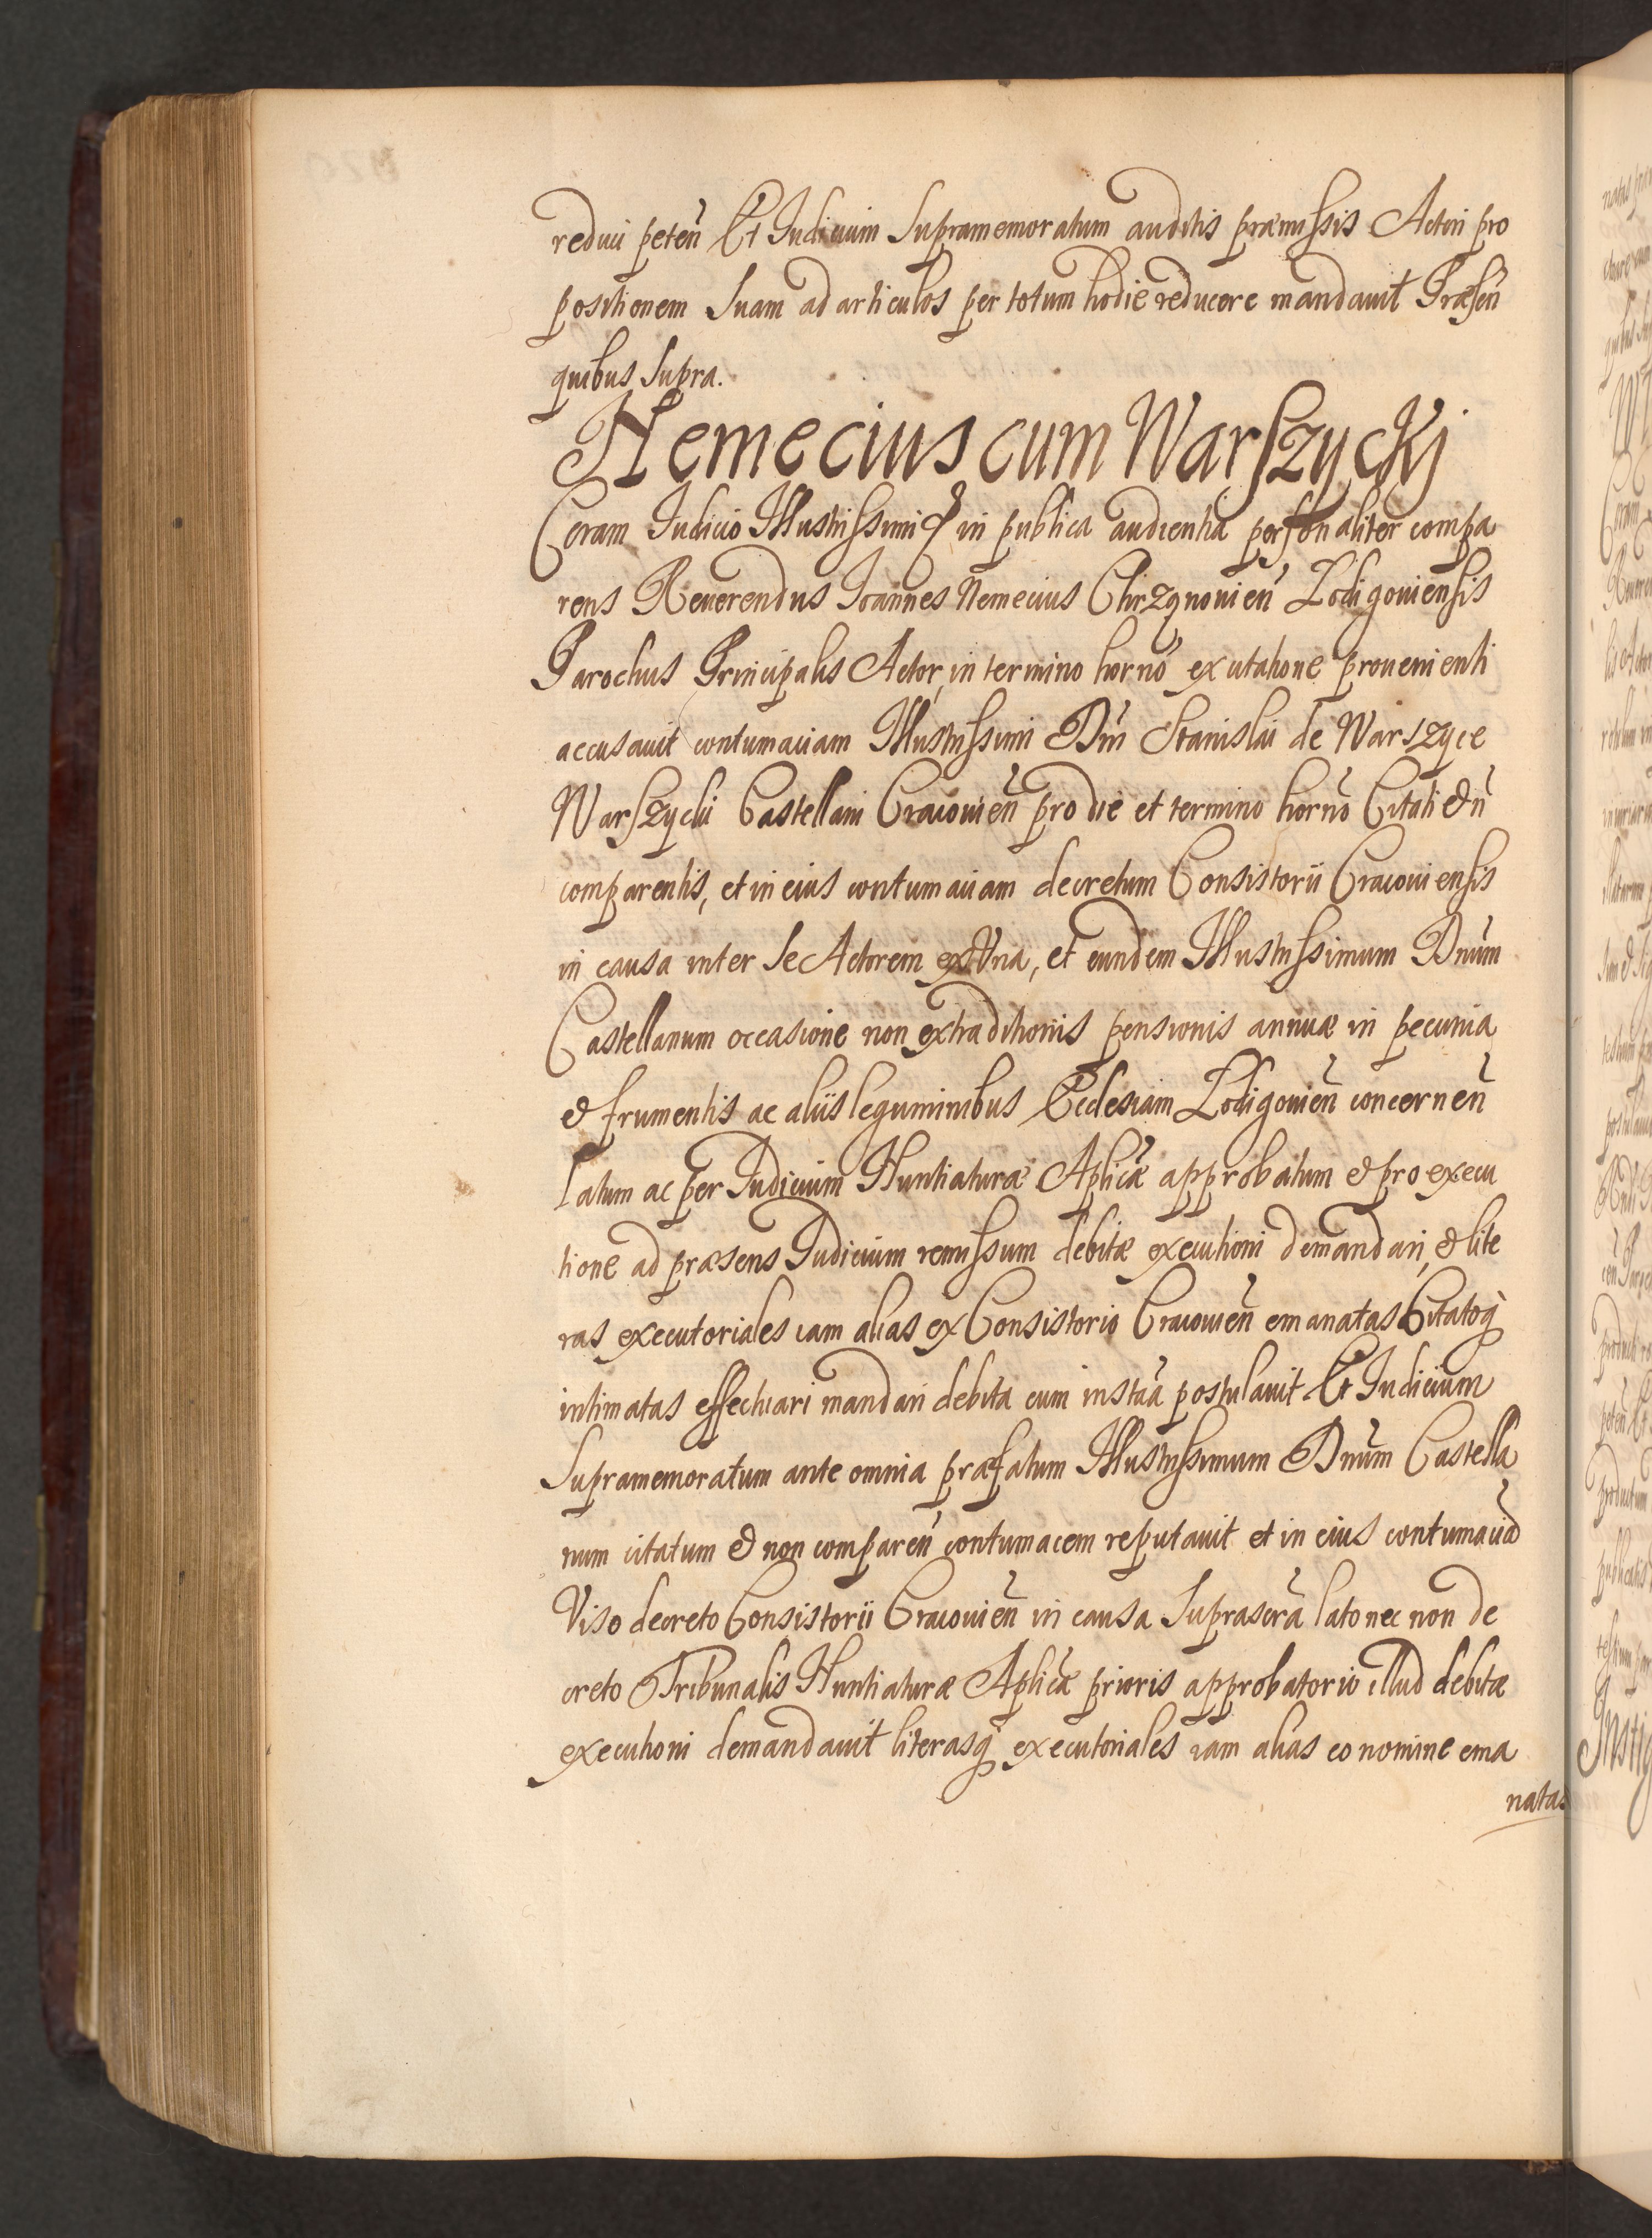 reduci peteñ Et Judicium Supramemoratum auditis præmissis Actori pro
positionem Suam ad articulos per totum hodie reducere mandavit Præseñ
quibus Supra.
Nemecius cum Warszyckj
Coram Judicio Illustrissimi & in publica audientia personaliter compa
rens Reverendus Joannes Nemecius Chrzqnovieñ Zodigoviensis
Parochus Principalis Actor, in termino horno ex citatione provenienti
accusavit contumaciam Illustrissimi Dñi Stanislai de Warszyce
Warszycki Castellani Cracovieñ pro die et termino horno Citati & ñ
comparentis, et in eius contumaciam decretum Consistorii Cracoviensis
in causa inter Se Actorem ex Una, et eundem Illustrissimum Dnum
Castellanum occasione non extraditionis pensionis annuæ in pecunia
& frumentis ac aliis leguminibus Ecclesiam Zodigovieñ concerneñ
Latum ac per Judicium Nuntiaturæ Aplicæ approbatum & pro execu
tione ad præsens Judicium remissum debitæ executioni demandari, & lite
ras executoriales iam alias ex Consistorio Cracovieñ emanatas Citatoq
intimatas effectuari mandari debita cum instãa postulavit. Et Judicium
Supramemoratum ante omnia præfatum Illustrissimum Dnum Castella
num citatum & non compareñ contumacem reputavit et in eius contumaciã
Viso decreto Consistorii Cracovieñ in causa Suprascrã lato nec non de
creto Tribunalis Nuntiaturæ Aplicæ prioris approbatorio illud debitæ
executioni demandavit literasq executoriales iam alias eo nomine ema
natas